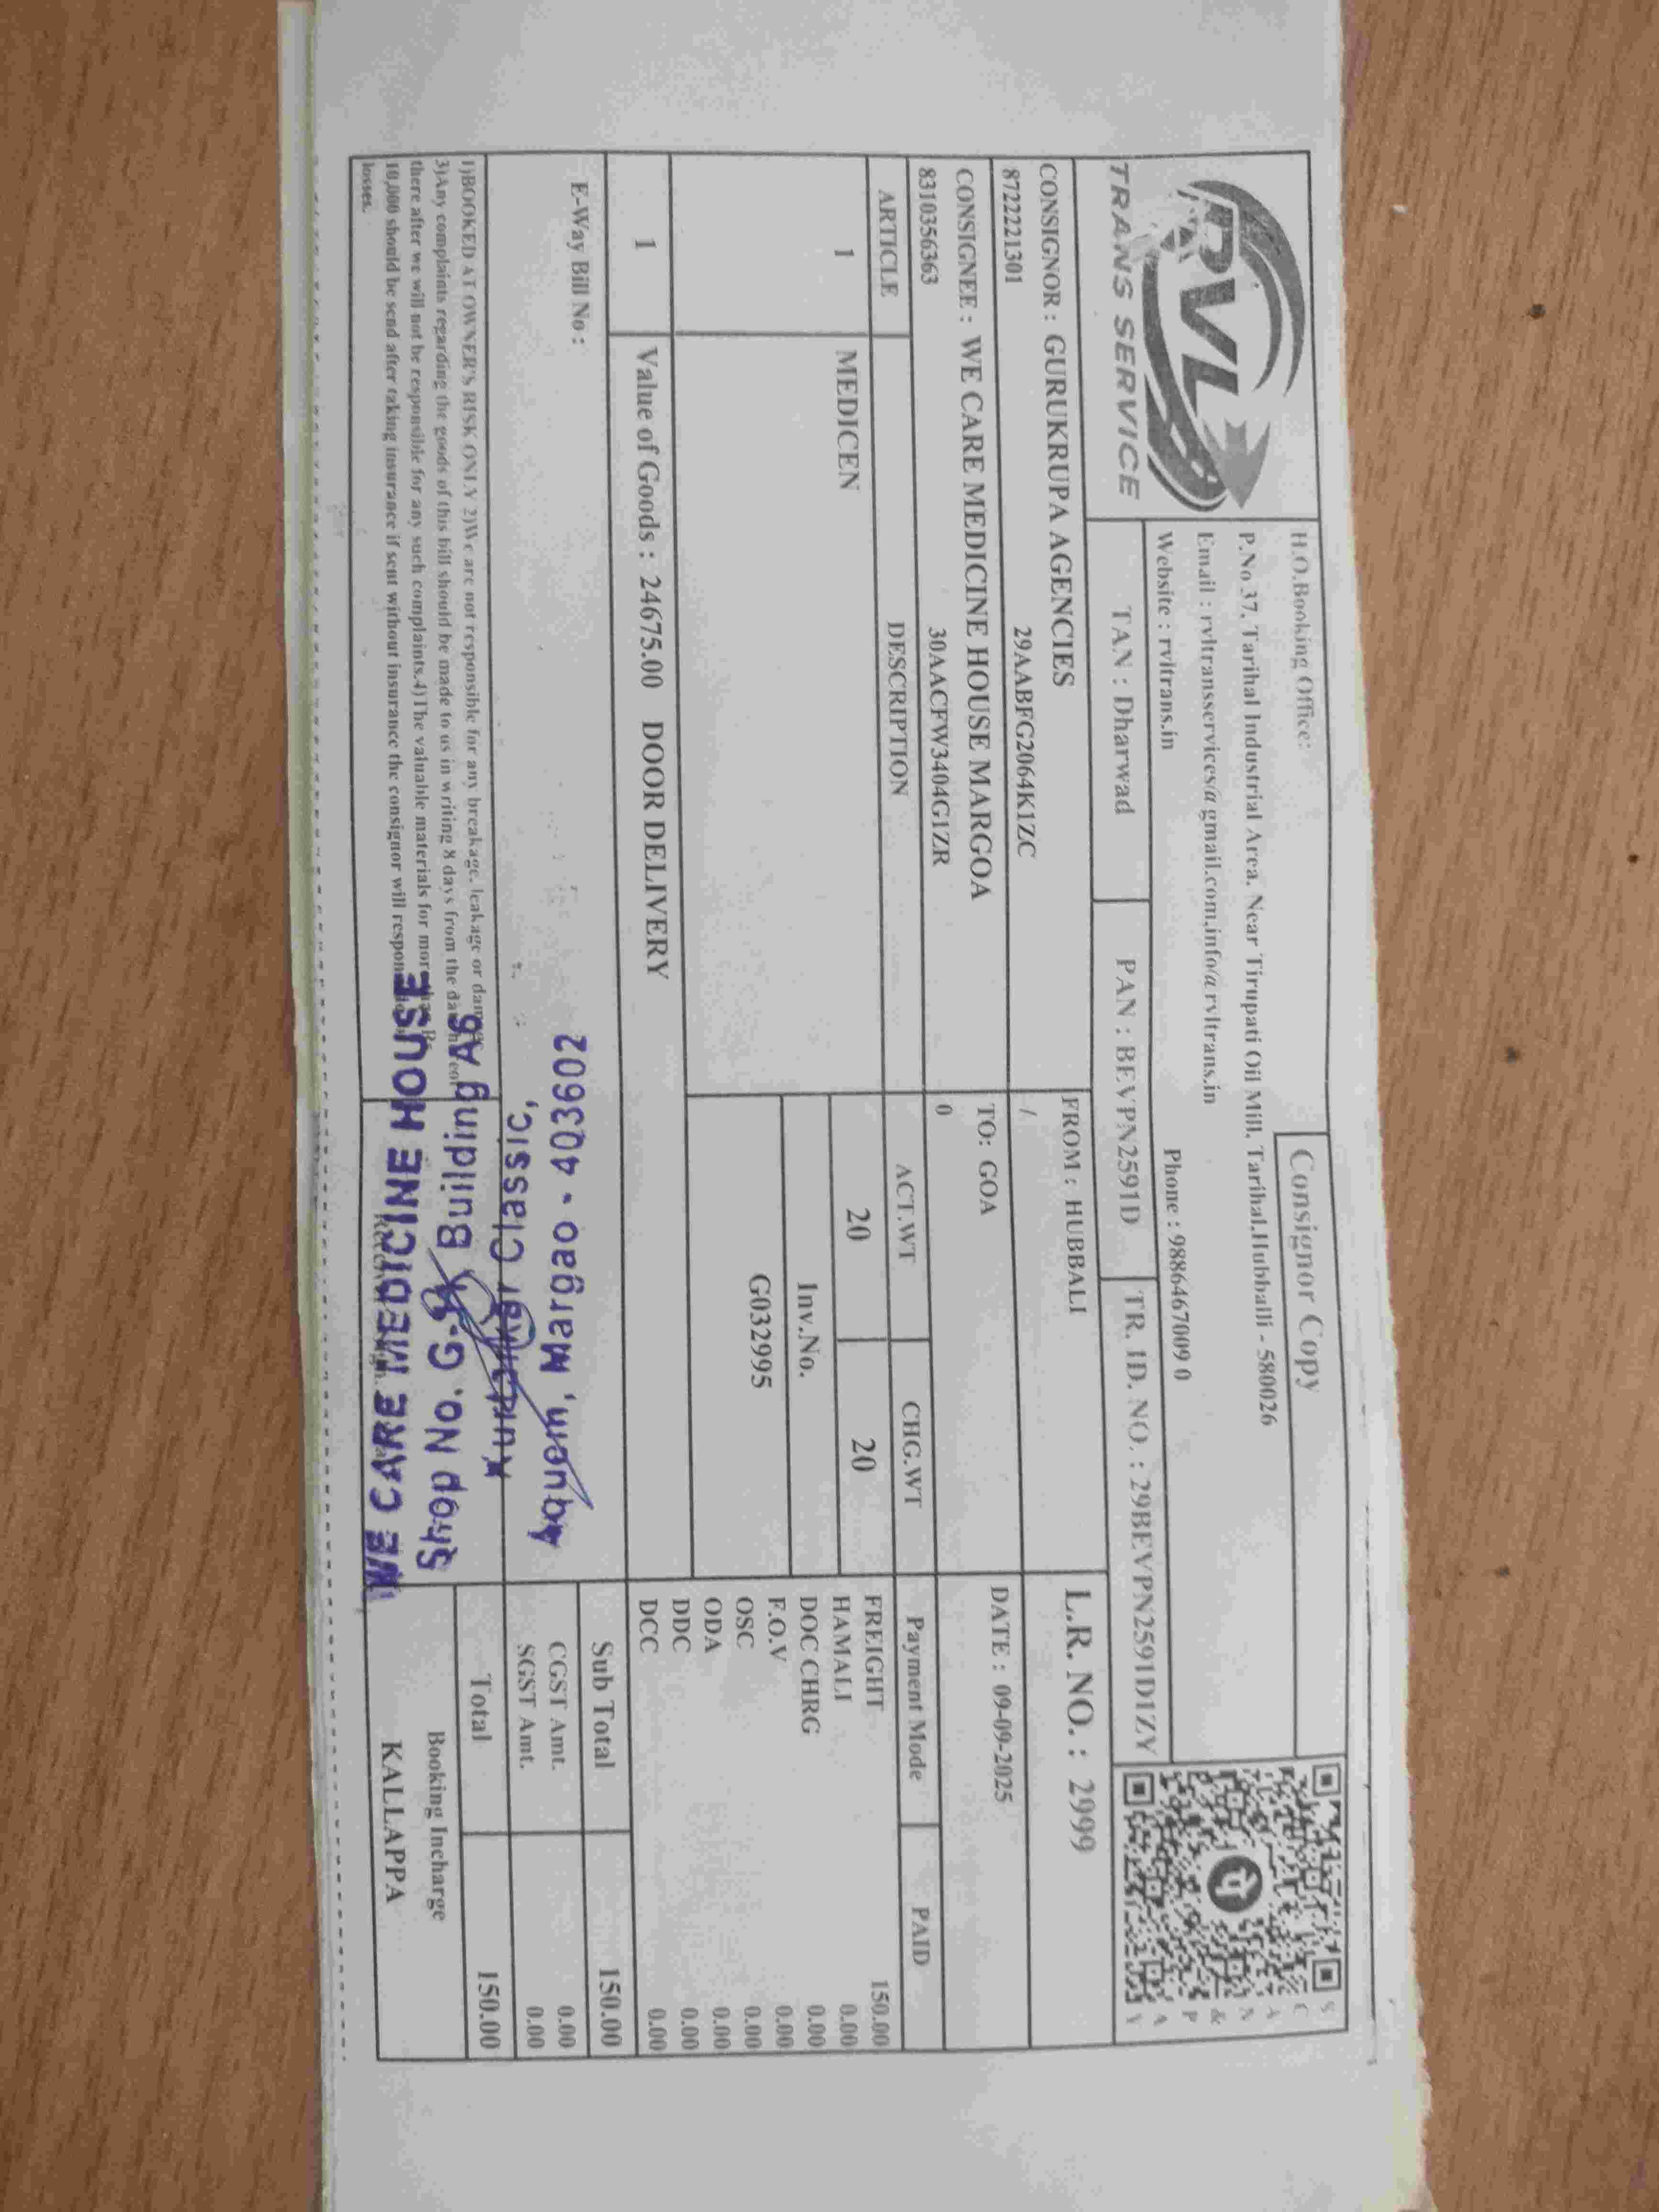 RVL
TRANS SERVICE
H.O.Booking Office:
Consignor Copy
P.No 37, Tarihal Industrial Area, Near Tirupati Oil Mill, Tarihal,Hubballi - 580026
Email : rvltransservices@gmail.com,info@rvltrans.in
Website : rvltrans.in
Phone : 9886467009 0
SCAN & PAY
TAN : Dharwad
PAN : BEVPN2591D
TR. ID. NO. : 29BEVPN2591D1ZY
CONSIGNOR : GURUKRUPA AGENCIES
FROM : HUBBALI
L.R. NO. : 2999
8722221301 29AABFG2064K1ZC
/
CONSIGNEE : WE CARE MEDICINE HOUSE MARGOA
TO: GOA
DATE : 09-09-2025
8310356363 30AACFW3404G1ZR
0
ARTICLE DESCRIPTION ACT.WT CHG.WT Payment Mode PAID
1 MEDICEN 20 20
Inv.No.
G032995
FREIGHT 150.00
HAMALI 0.00
DOC CHRG 0.00
F.O.V 0.00
OSC 0.00
ODA 0.00
DDC 0.00
DCC 0.00
1 Value of Goods : 24675.00 DOOR DELIVERY
Sub Total 150.00
E-Way Bill No :
CGST Amt. 0.00
SGST Amt. 0.00
Total 150.00
1)BOOKED AT OWNER'S RISK ONLY 2)We are not responsible for any breakage, leakage or
3)Any complaints regarding the goods of this bill should be made to us in writing 8 days from the
there after we will not be responsible for any such complaints.4)The valuable materials for
10,000 should be send after taking insurance if sent without insurance the consignor will
losses.
Booking Incharge
KALLAPPA
WE CARE MEDICINE HOUSE
Shop No. Building A6
Classic,
Aquem, Margao - 403602